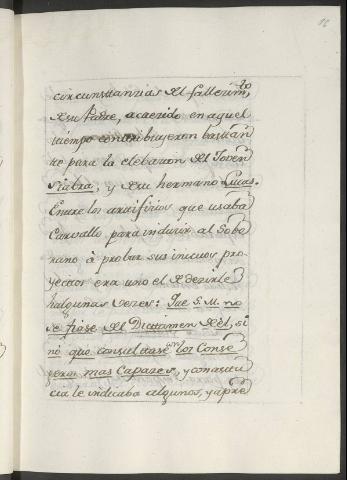 16
circunstanzias del fallecim.to
de su Padre, acaecido en aquel
tiempo contribuyeron bastan
te para la elebacion del Joven
Siabra, y de su hermano Lucas.
Entre los artificios que usaba
Carvallo para inducir al Sobe
rano à probar sus inicuos pro
yectos era uno el dezirle
halgunas vezes: Que S. M. no
se fiase del Dictamen del, si
nó que consultase con los Conse
geros mas Capazes, y con astu
cia le indicaba algunos, y à pre